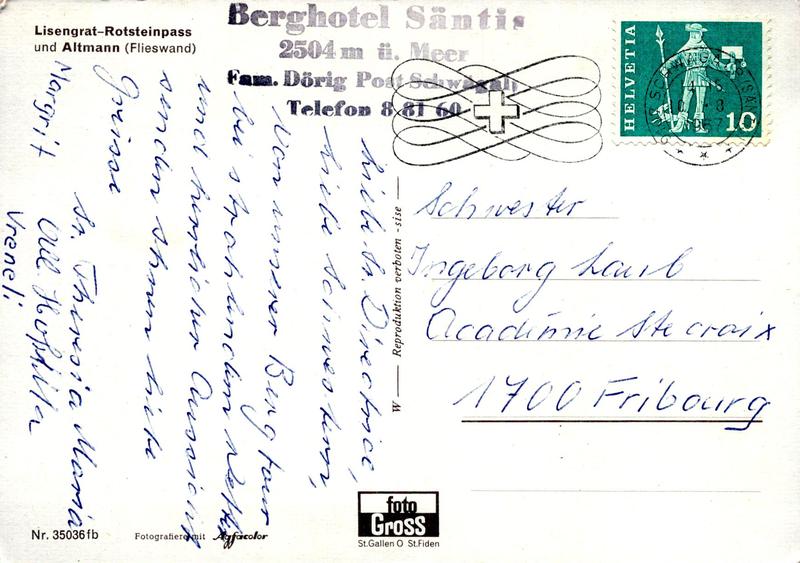 Lisengrat-Rotsteinpass
und Altmann (Flieswand)
Berghotel Säntis
2504 m ü. Meer
Fam. Dörig Post Schwägalp
Telefon 8 81 60
HELVETIA
10
Liebe Sr. Directrice,
liebe Schwestern,
Von unserer Bergtour
bei strahlendem Wetter
und herrlicher Aussicht
senden Ihnen liebe
Grüsse
Sr. Theresia Maria
Margrit
Vreneli
Schwester
Ingeborg Laub
Académie Ste croix
1700 Fribourg
W — Reproduktion verboten - sise —
Nr. 35036fb
Fotografiere mit Agfacolor
foto
GROSS
St.Gallen O St.Fiden